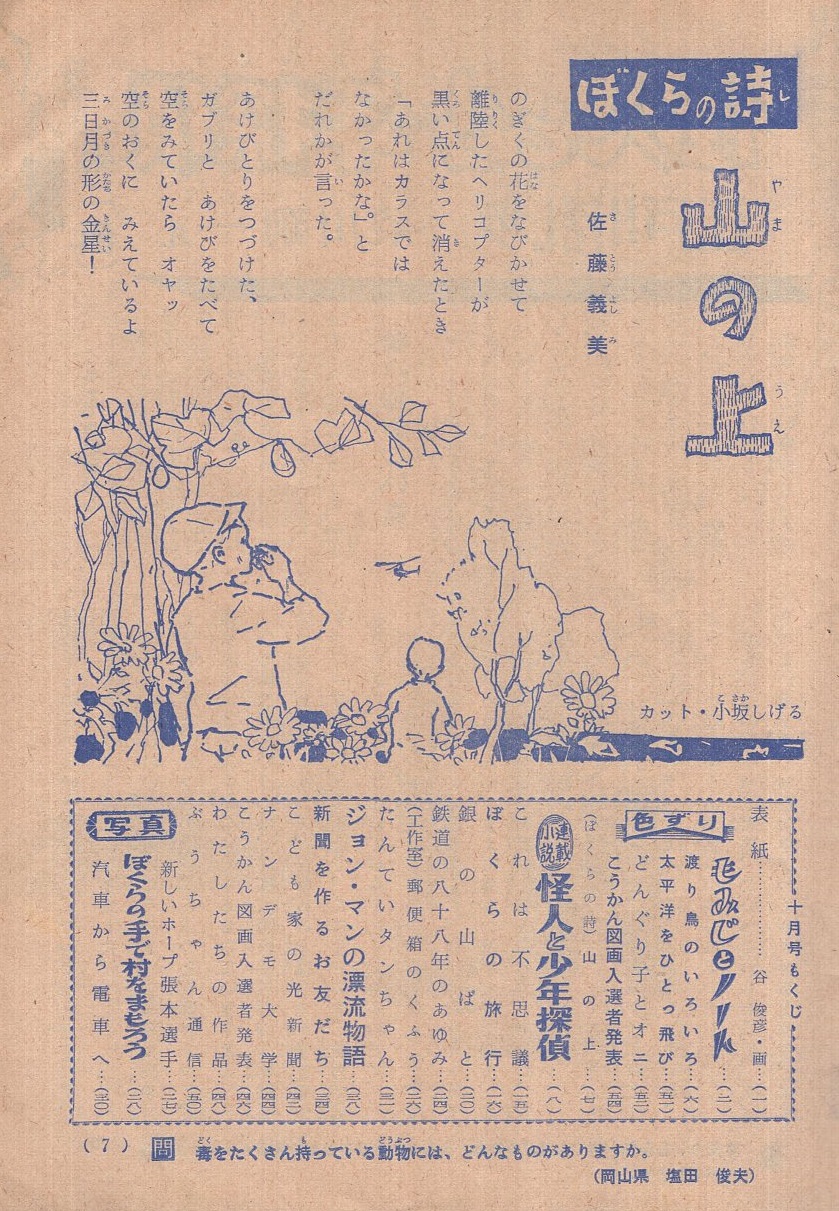 ぼくらの詩
山の上
佐藤義美
のぎくの花をなびかせて
離陸したヘリコプターが
黒い点になって消えたとき
「あれはカラスでは
なかったかな。」と
だれかが言った。
あけびとりをつづけた、
ガブリと あけびをたべて
空をみていたら オヤッ
空のおくに みえているよ
三日月の形の金星!
カット・小坂しげる
十月号もくじ
表紙……………谷俊彦・画…(一)
色ずり
もみじとノート…(二)
渡り鳥のいろいろ…(六)
太平洋をひとっ飛び…(五一)
どんぐり子とオニ…(五二)
こうかん図画入選者発表…(五四)
(ぼくらの詩)山の上…(七)
連載小説 怪人と少年探偵…(八)
これは不思議…(一五)
ぼくらの旅行…(一六)
銀の山ばと…(二〇)
鉄道の八十八年のあゆみ…(二四)
(工作室)郵便箱のくふう…(二六)
たんていタンちゃん…(三一)
ジョン・マンの漂流物語…(三八)
新聞を作るお友だち…(三四)
こども家の光新聞…(四二)
ナンデモ大学…(四四)
こうかん図画入選者発表…(四六)
わたしたちの作品…(四八)
ぷうちゃん通信…(五〇)
写真
新しいホープ張本選手…(二七)
ぼくらの手で村をまもろう…(二八)
汽車から電車へ…(三〇)
(7)
問 毒をたくさん持っている動物には、どんなものがありますか。
(岡山県 塩田 俊夫)